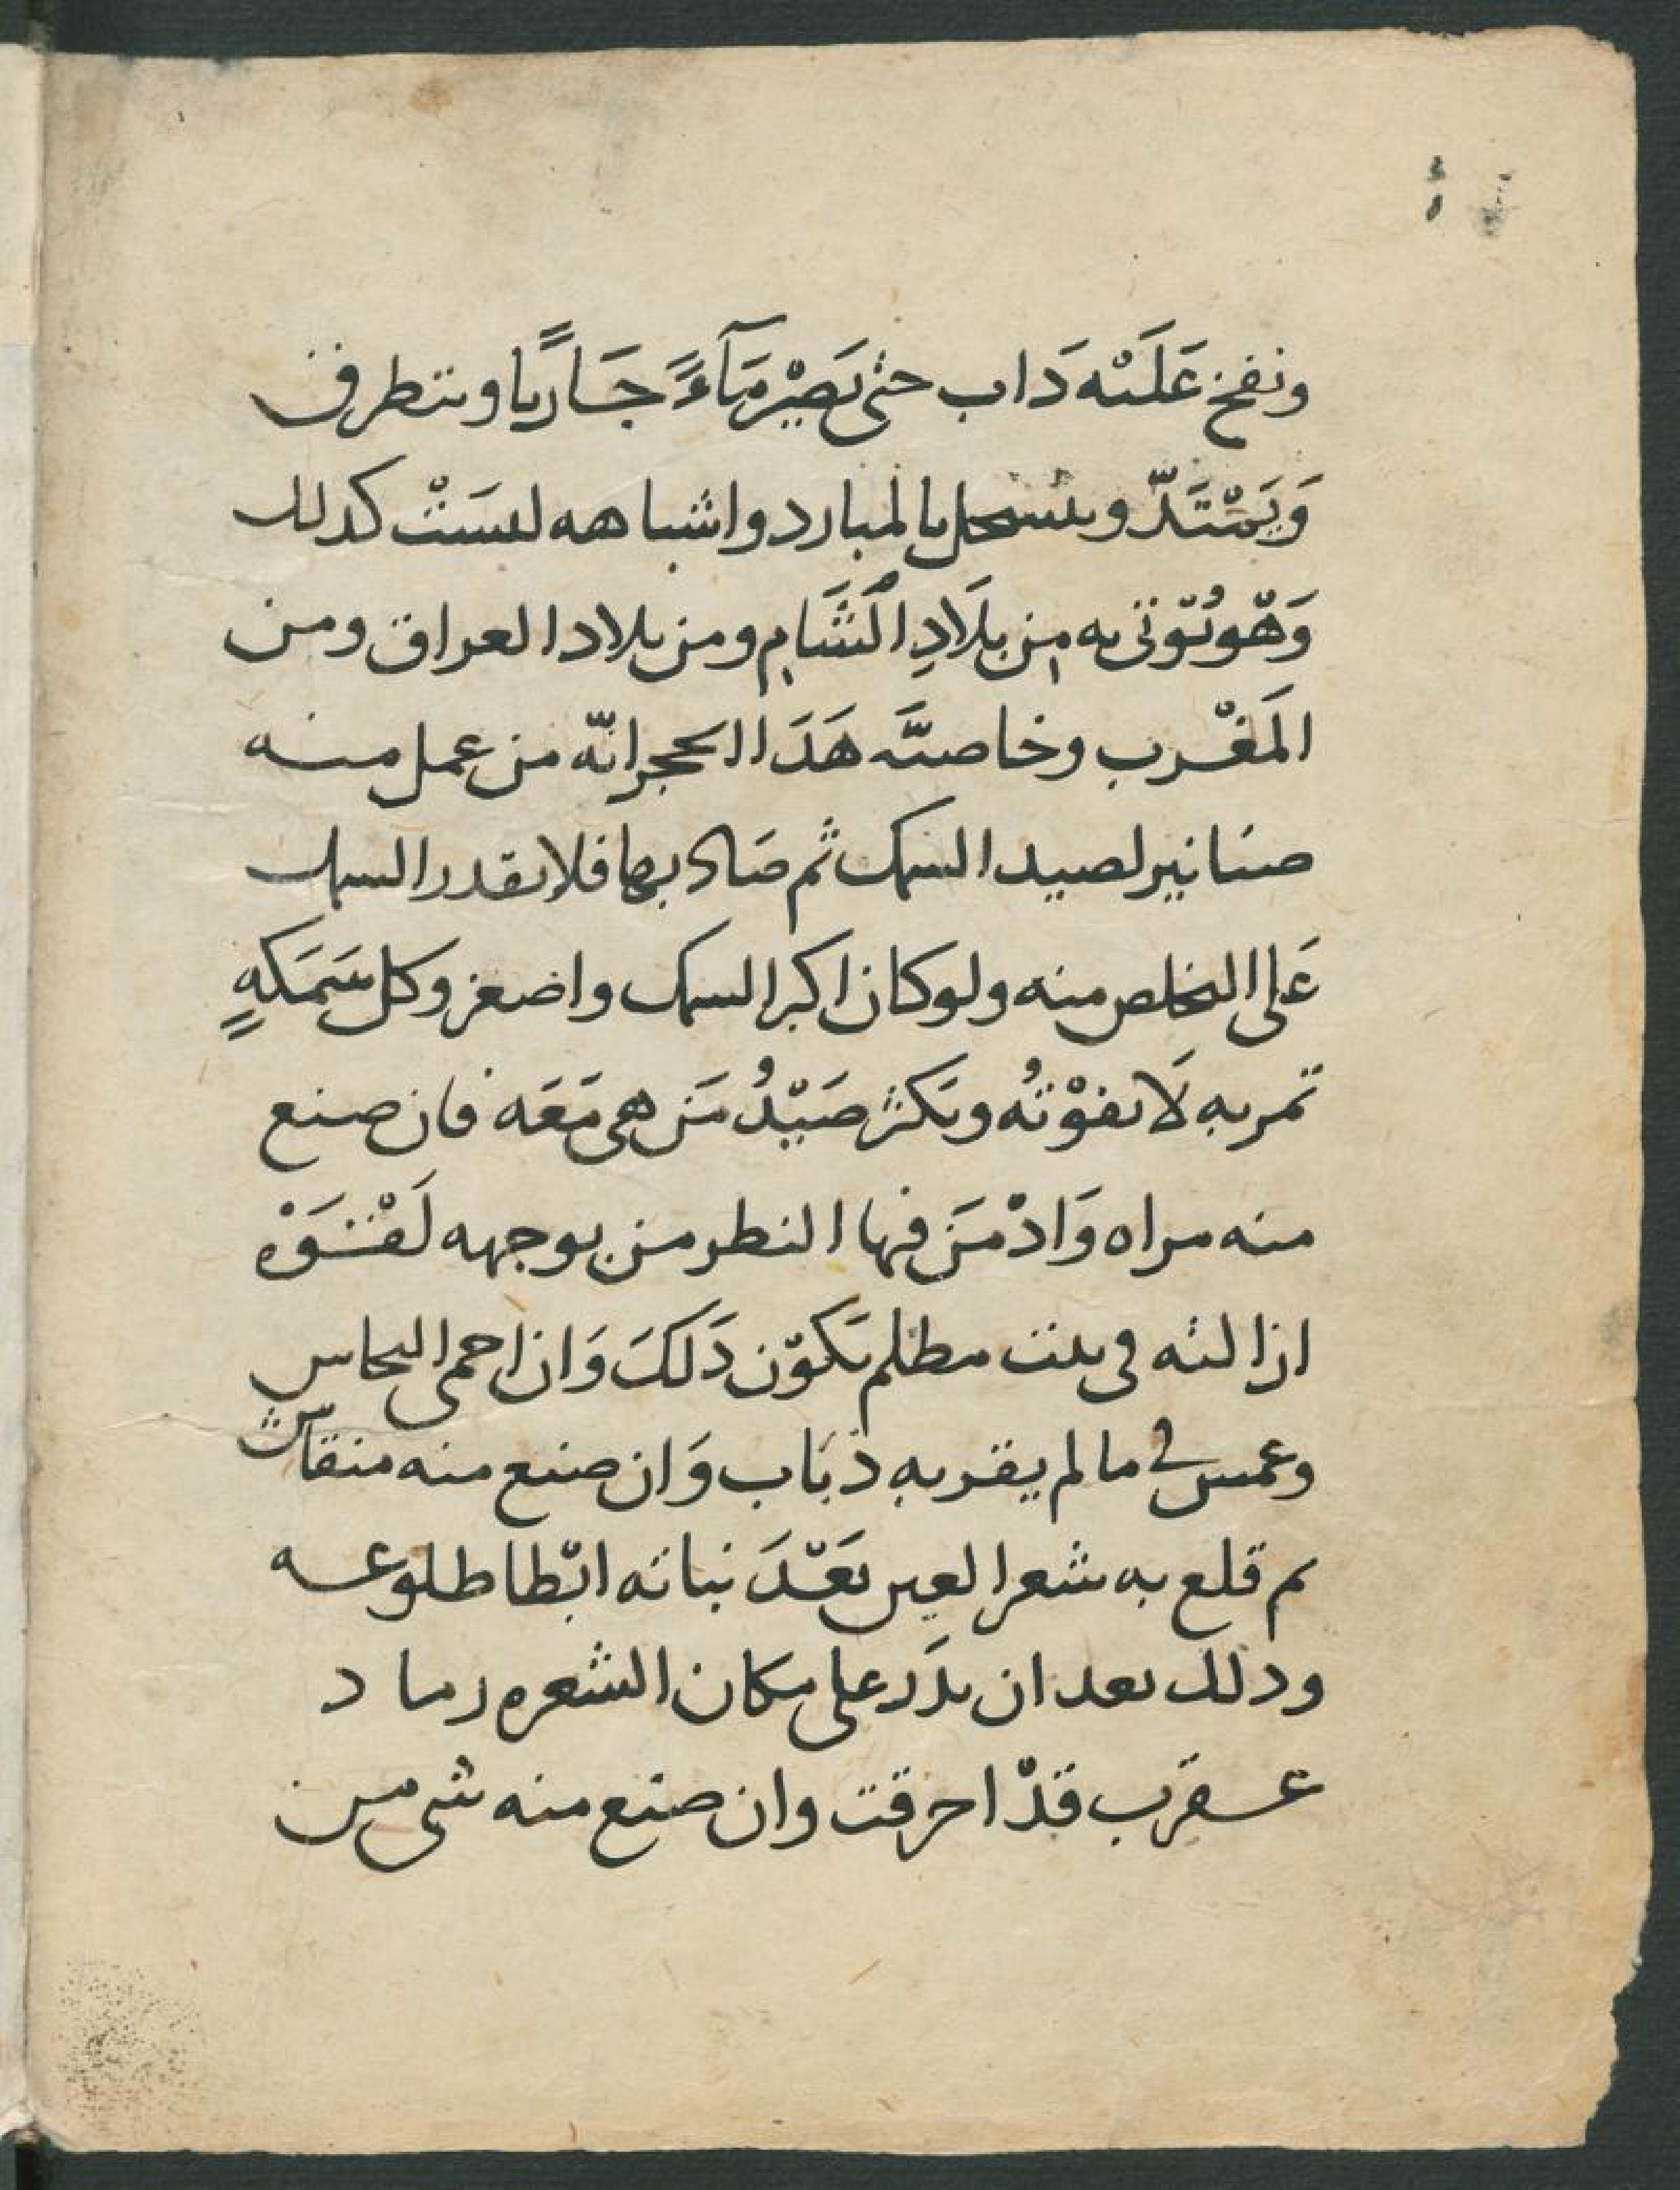 ونفخ عَلَيْه دَاب حتى يَصِيْر مَآءً جَارِيًا ويتطرق
وَيَمْتَدّ وينسحل بالمبارد واشباهه ليسَتْ كذلك
وَهْو يُؤتى به مِن بلَادِ الشَّامِ ومن بلاد العراق ومن
المَغْرب وخاصيَّه هَذَا الحجر انّه من عمل منه
صنانير لصيد السمك ثم صَاد بها فلا يقدر السمك
عَلى التخلص منه ولو كان اكبر السمك واصغر وكل سَمَكَهٍ
تمر به لَا تفوْتُه ويَكثر صَيْدُ مَن هى مَعَه فان صنع
منه مراه وَادْمَن فيها النظر من بوجهه لَقْوَهْ
اذا لثه فى بيت مظلم يَكوّن ذَلكَ وَان احمى النحاس
وغمس فى ما لم يقربه ذبَاب وَان صنع منه منقاش
ثم قلع به شعر العين بَعْدَ نباته ابْطا طلوعه
وذلك بعد ان يذَر على مكان الشعره رماد
عقرَب قدْ احرقت وان صنع منه شى من